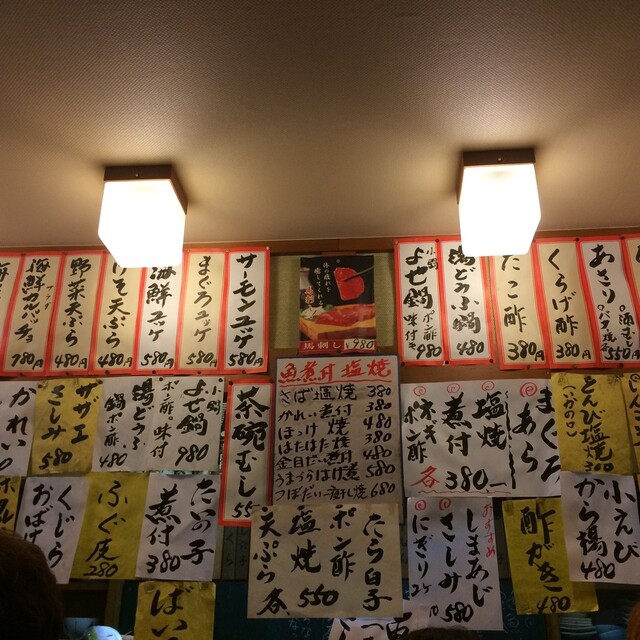 サーモンユッケ
580円
まぐろユッケ
580円
海鮮ユッケ
580円
げそ天ぷら
480円
野菜天ぷら
480円
海鮮カルパッチョ
サラダ
780円
あさり
酒むし
バタ焼
くらげ酢
380円
たこ酢
380円
湯どうふ鍋
480円
小鍋
よせ鍋
ポン酢
味付
980円
馬刺し
¥980
魚煮付塩焼
さば塩焼 380
かれい煮付 380
ほっけ焼 480
はたはた焼 380
金目だい煮付 480
うまづらはげ煮 580
つぼだい一夜干し焼 680
茶碗むし
よせ鍋
ポン酢
味付
980
湯どうふ
鍋
ポン酢
480
サザエ
さしみ
580
かれい
とんび塩焼
(いかの口)
300
まぐろ
あら
塩焼
煮付
ネギポン酢
各380
たいの子
煮付
380
ふぐ皮
280
くじら
おばけ
小えび
から揚
480
酢がき
480
おすすめ
しまあじ
さしみ
580
にぎり2ケ
たら白子
ポン酢
塩焼
天ぷら
各550
ばい